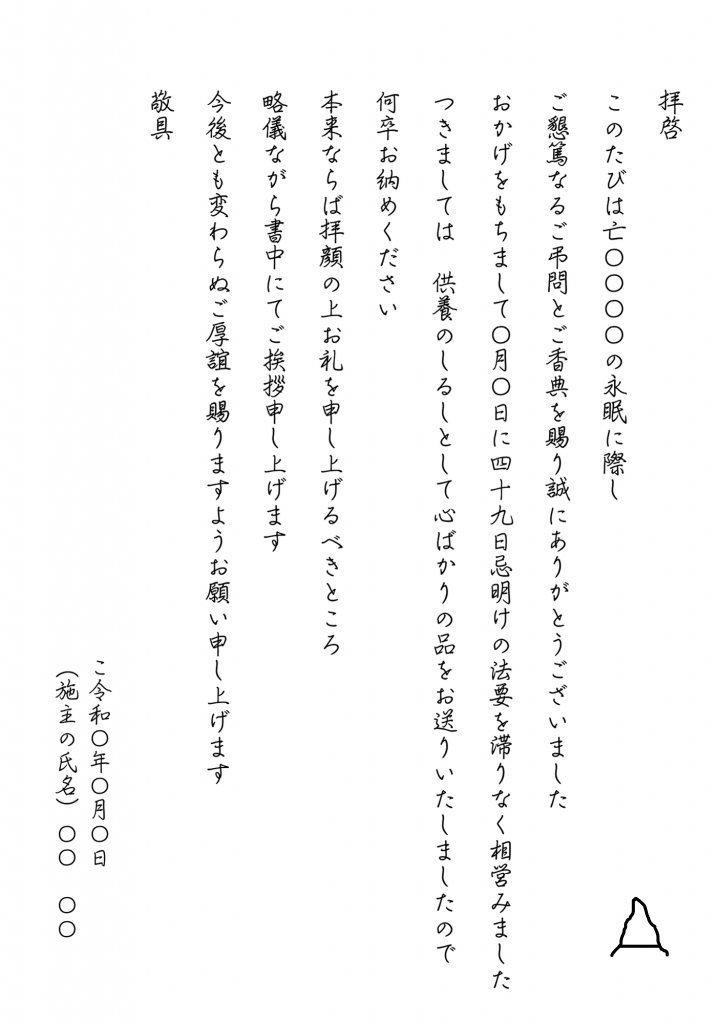 拝啓
このたびは亡〇〇〇〇の永眠に際し
ご懇篤なるご弔問とご香典を賜り誠にありがとうございました
おかげをもちまして〇月〇日に四十九日忌明けの法要を滞りなく相営みました
つきましては　供養のしるしとして心ばかりの品をお送りいたしましたので
何卒お納めください
本来ならば拝顔の上お礼を申し上げるべきところ
略儀ながら書中にてご挨拶申し上げます
今後とも変わらぬご厚誼を賜りますようお願い申し上げます
敬具
こ令和〇年〇月〇日
（施主の氏名）〇〇　〇〇